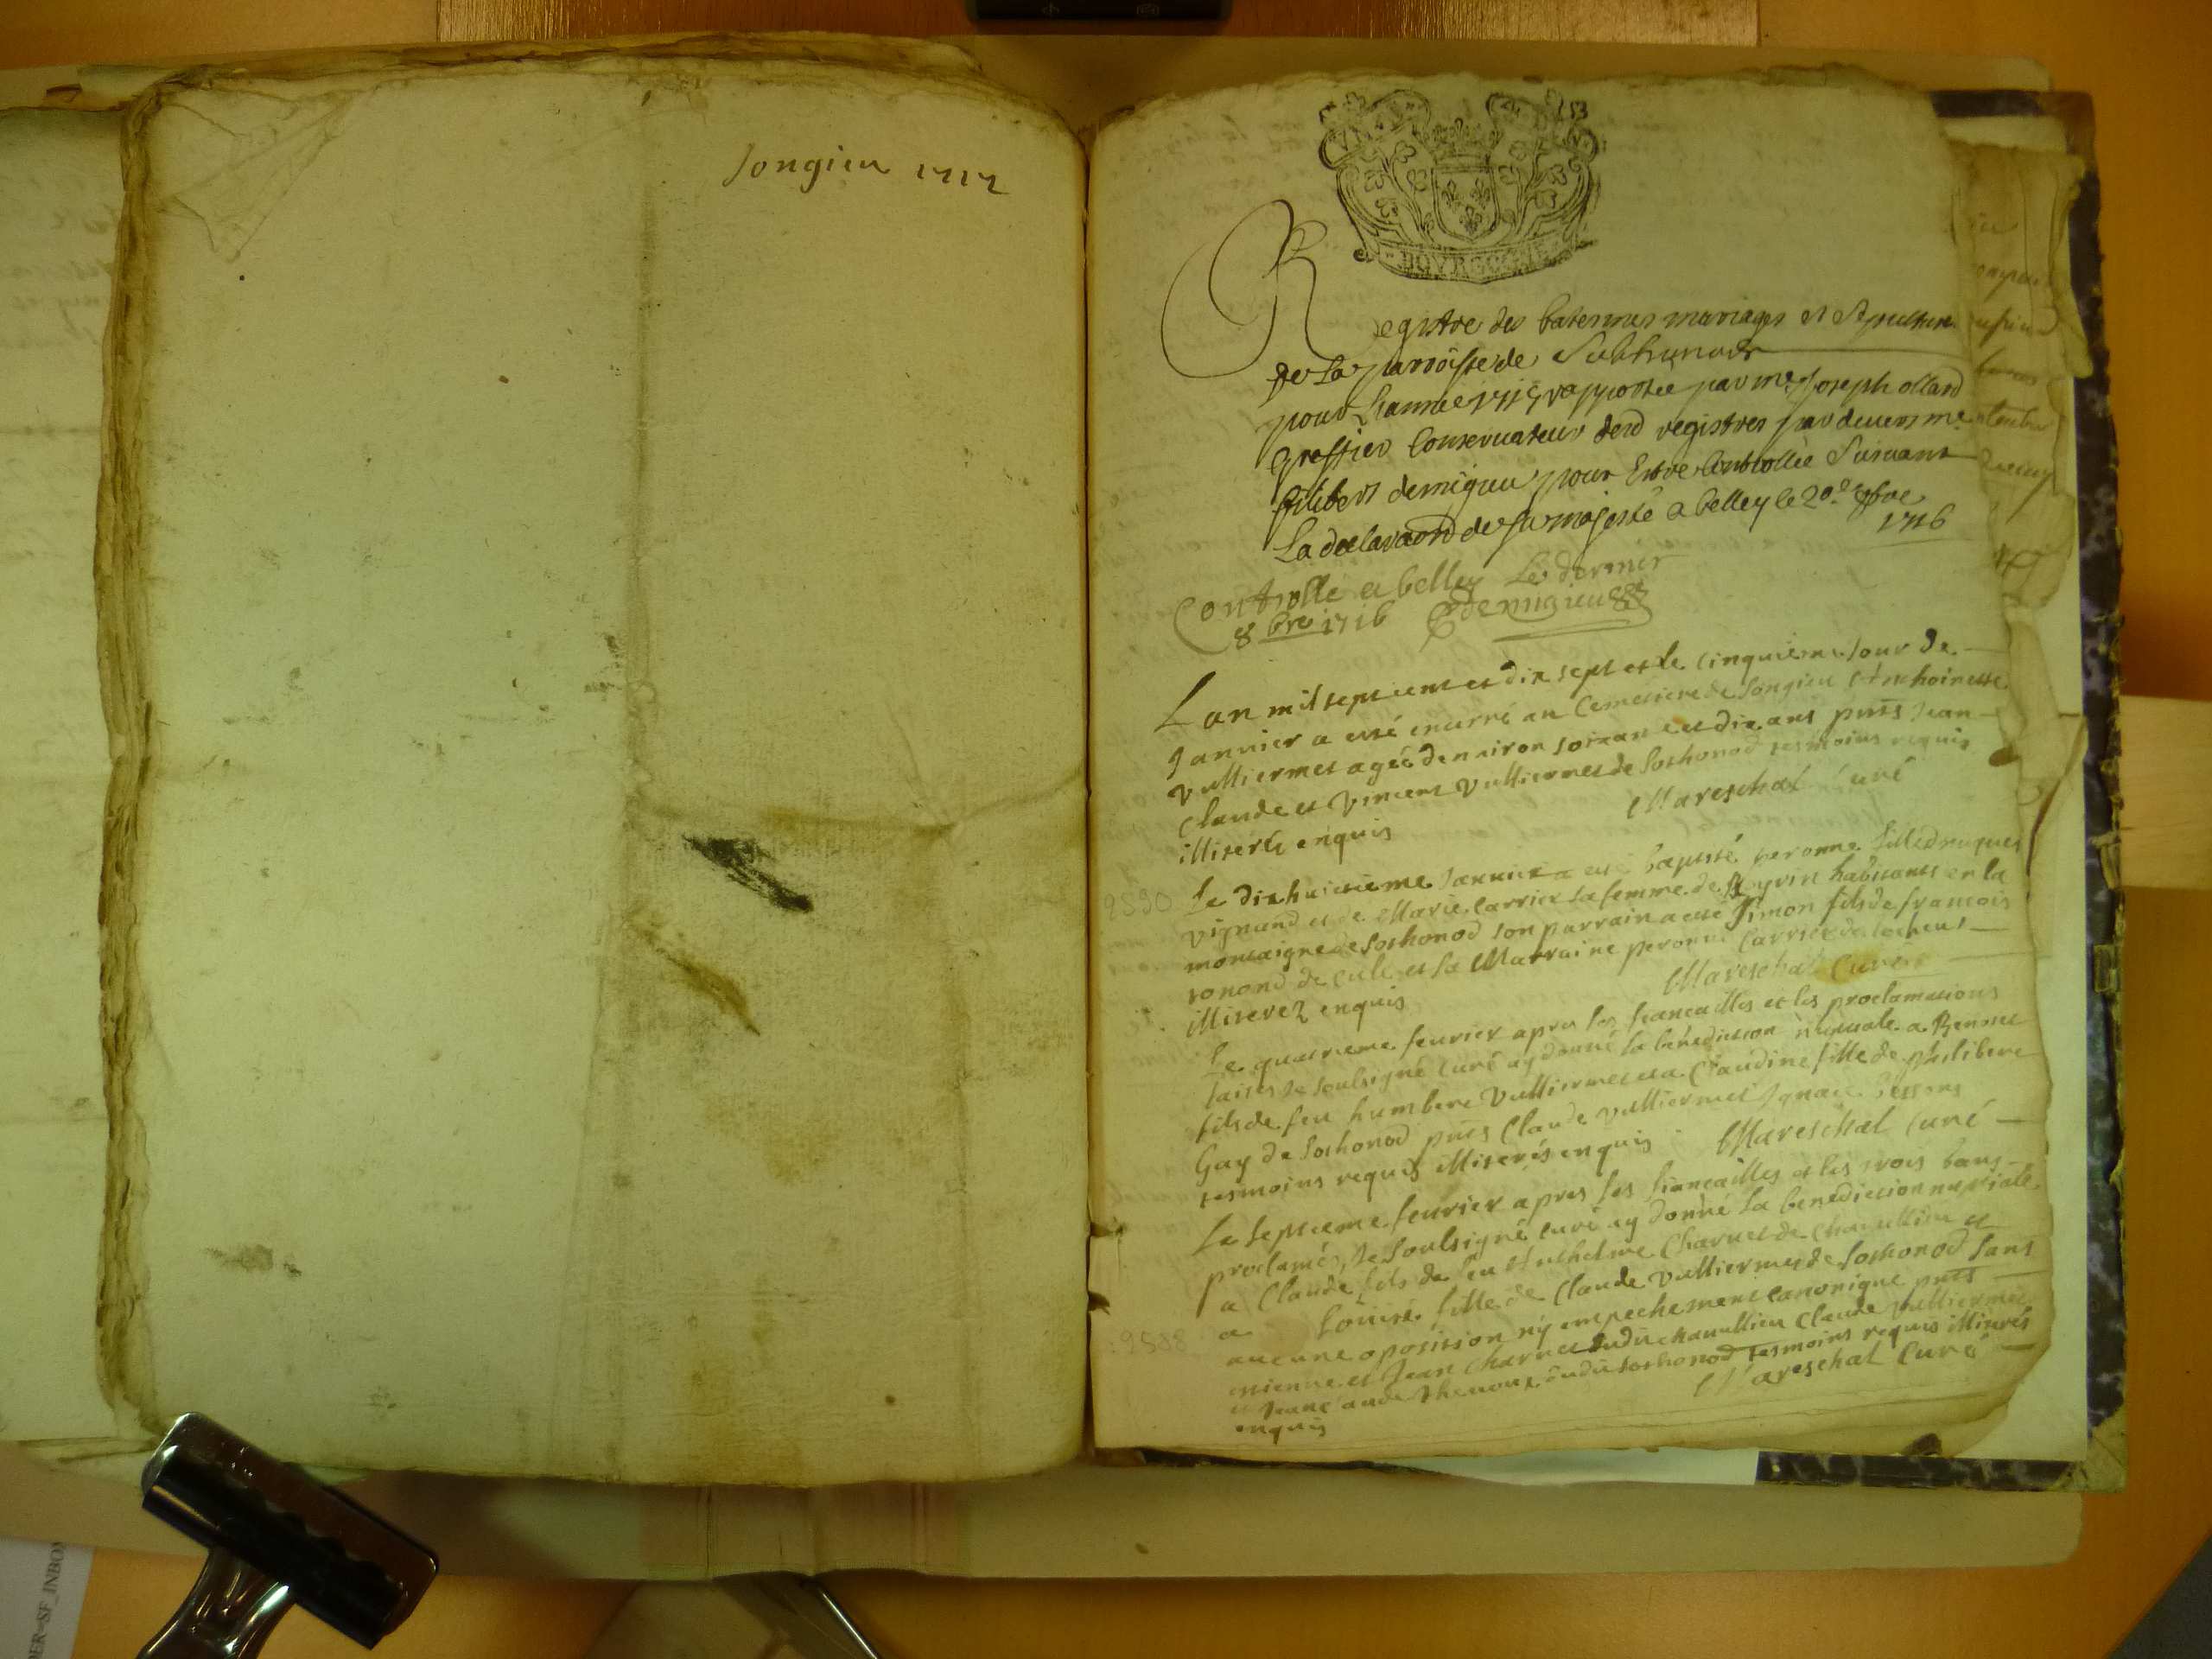 Songieu 1717
BOVRGOGNE
Registre des batesmes mariages et Sepulture
de La parroisse de Sothonod
pour Lannee 1717 rapportée par me Joseph ollard
greffier Conservateur desd registres par devers me
filibert demigieu pour Estre Controllée Suivant
La declaraond de sa majesté a belley le 20e 8bre
1716
Controlle a belley Le dernier
8bre 1716 demigieu
Lan mil sept cent et dix sept et le cinquieme jour de
Janvier a esté enterré au Cemetiere de Songieu Anthoinette
Vulliermet agée denviron soixante et dix ans pnts Jean
Claude et Vincent Vulliermet de Sothonod tesmoins requis
illiterés enquis Mareschal Curé
9590
Le dix huictieme Janvier a esté baptisé peronne fille
vignand et de Marie Carrier sa femme de habitants en la
montaigne de Sothonod son parrain a esté Simon fils de francois
de et la Marraine peronne Carrier de
illiterez enquis Mareschal Curé
Le quatrieme fevrier apres les fiancailles et les proclamations
faites Je soubsigné curé ay donné la bénédiction nuptuale a Benoist
fils de feu humbert Vulliermet et a Claudine fille de philibert
Gay de Sothonod pnts Claude Vulliermet Ignace
tesmoins requis illiterés enquis Mareschal Curé
Le Septieme fevrier apres les fiancailles et les trois bans
proclamés, Je Soubsigné curé ay donné la benediction nuptiale
a Claude fils de feu Anthelme Charvet de Chavillieu et
a Louise fille de Claude Vulliermet de Sothonod sans
aucune oposition ny empechement canonique pnts
etienne et Jean Charvet dudit chavillieu Claude Vulliermet
et Jean Claude Thevenon dudit Sothonod tesmoins requis illiterés
enquis Mareschal Curé
9588